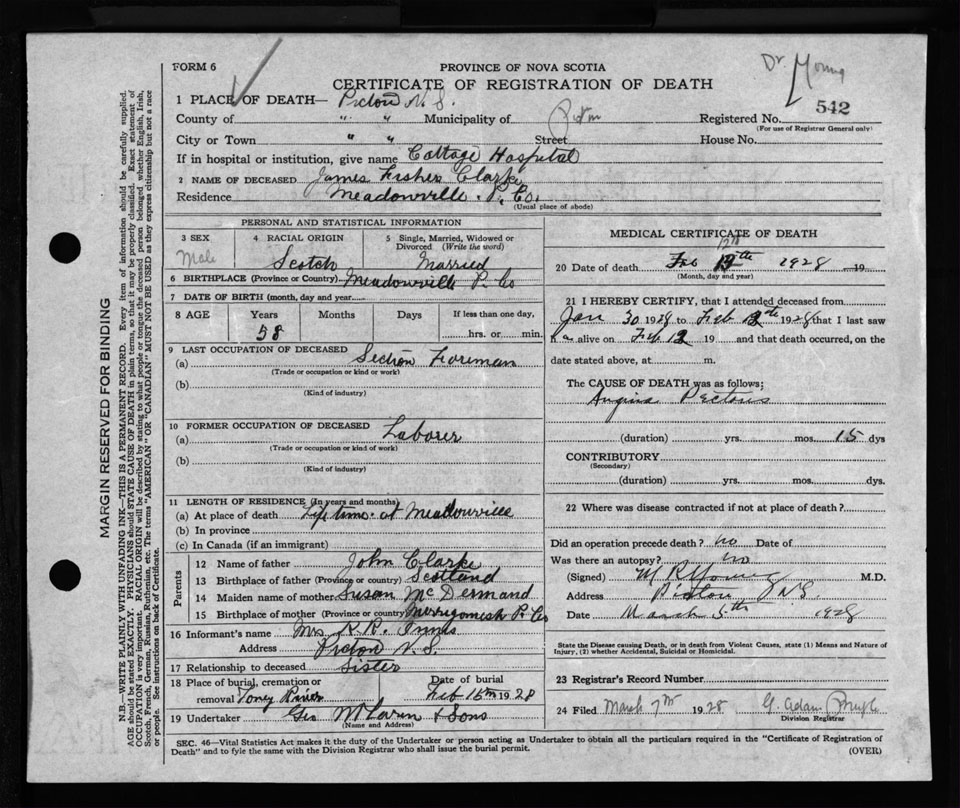 Dr Young
FORM 6
PROVINCE OF NOVA SCOTIA
CERTIFICATE OF REGISTRATION OF DEATH
542
1 PLACE OF DEATH— Pictou N. S.
County of " " Municipality of Pictou Registered No.
(For use of Registrar General only)
City or Town " " Street House No.
If in hospital or institution, give name Cottage Hospital
2 NAME OF DECEASED James Fisher Clarke
Residence Meadowville P. Co.
(Usual place of abode)
PERSONAL AND STATISTICAL INFORMATION
3 SEX 4 RACIAL ORIGIN 5 Single, Married, Widowed or Divorced (Write the word)
Male Scotch Married
6 BIRTHPLACE (Province or Country) Meadowville P. Co
7 DATE OF BIRTH (month, day and year)
8 AGE Years Months Days If less than one day,
58 hrs. or min.
9 LAST OCCUPATION OF DECEASED
(a) Section Foreman
(Trade or occupation or kind or work)
(b)
(Kind of industry)
10 FORMER OCCUPATION OF DECEASED
(a) Laborer
(Trade or occupation or kind of work)
(b)
(Kind of industry)
11 LENGTH OF RESIDENCE (In years and months)
(a) At place of death Life time at Meadowville
(b) In province
(c) In Canada (if an immigrant)
Parents
12 Name of father John Clarke
13 Birthplace of father (Province or country) Scotland
14 Maiden name of mother Susan McDermand
15 Birthplace of mother (Province or country) Merrigomish P. Co
16 Informant's name Mrs. Innis
Address Pictou N. S.
17 Relationship to deceased Sister
18 Place of burial, cremation or removal Toney River
Date of burial Feb 16th 1928
19 Undertaker Geo McLaren & Sons
(Name and Address)
MEDICAL CERTIFICATE OF DEATH
12th
20 Date of death Feb 13th 1928 19
(Month, day and year)
21 I HEREBY CERTIFY, that I attended deceased from
Jan 30 1928 to Feb 12th 1928 that I last saw
h alive on Feb 12 19 and that death occurred, on the
date stated above, at m.
The CAUSE OF DEATH was as follows;
Angina Pectoris
(duration) yrs. mos. 15 dys
CONTRIBUTORY
(Secondary)
(duration) yrs. mos. dys.
22 Where was disease contracted if not at place of death?
Did an operation precede death? no Date of
Was there an autopsy? no
(Signed) M R Young M.D.
Address Pictou N.S.
Date March 5th 1928
State the Disease causing Death, or in death from Violent Causes, state (1) Means and Nature of Injury, (2) whether Accidental, Suicidal or Homicidal.
23 Registrar's Record Number
24 Filed March 7th 1928 G. Adam Pringle
Division Registrar
SEC. 46—Vital Statistics Act makes it the duty of the Undertaker or person acting as Undertaker to obtain all the particulars required in the "Certificate of Registration of
Death" and to fyle the same with the Division Registrar who shall issue the burial permit.
(OVER)
MARGIN RESERVED FOR BINDING
N.B.—WRITE PLAINLY WITH UNFADING INK—THIS IS A PERMANENT RECORD. Every item of information should be carefully supplied.
AGE should be stated EXACTLY. PHYSICIANS should STATE CAUSE OF DEATH in plain terms, so that it may be properly classified. Exact statement of
OCCUPATION is very important. RACIAL ORIGIN will be described by stating to what people or tongue the deceased person belonged whether English, Irish,
Scotch, French, German, Russian, Ruthenian, etc. The terms "AMERICAN" OR "CANADIAN" MUST NOT BE USED as they express citizenship but not a race
or people. See instructions on back of Certificate.